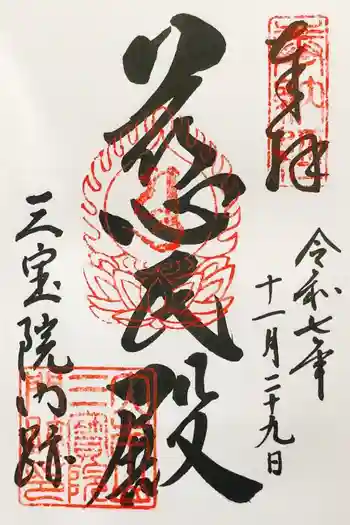 奉拝
令和七年
十一月二十九日
慈氏殿
三宝院門跡